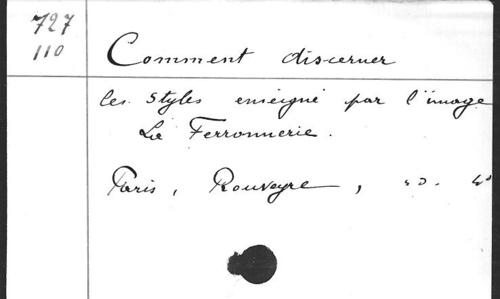 727
110
Comment discerner
les styles enseigné par l'image
La Ferronnerie.
Paris, Rouveyre, s.d. 4°